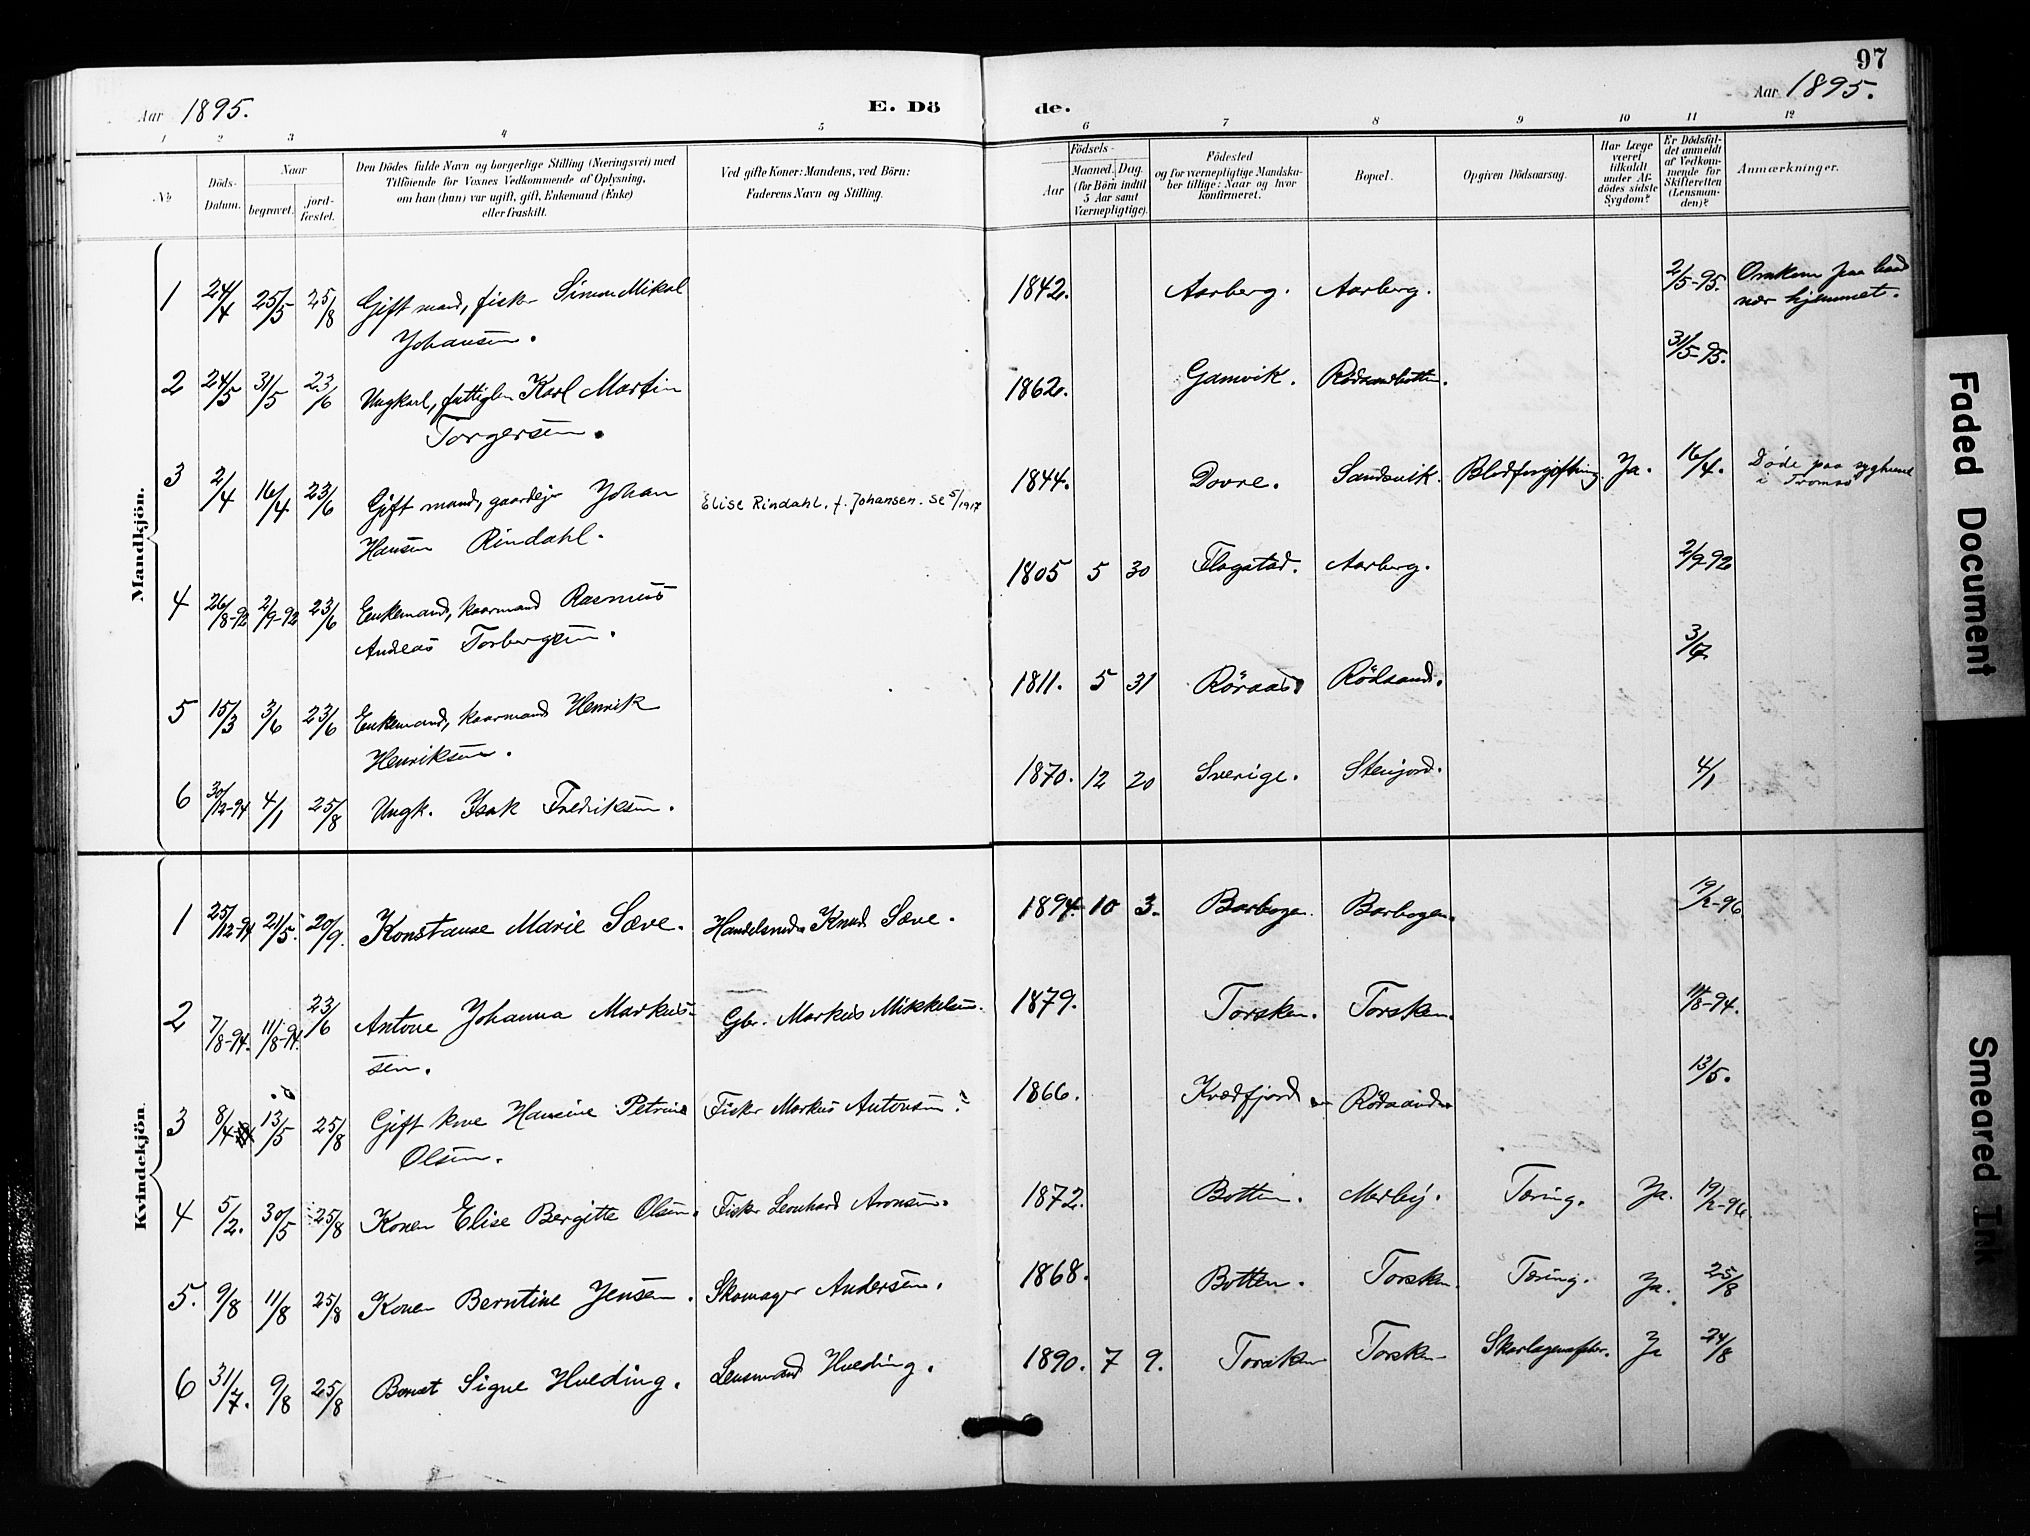 97
Aar 1895.
E. Dö
de.
Aar 1895.
1 2 3 4 5 6 7 8 9 10 11 12
No
Döds-
Datum.
Naar
begravet.
jord-
fæstet.
Den Dödes fulde Navn og borgerlige Stilling (Næringsvei) med
Tilföiende for Voxnes Vedkommende af Oplysning,
om han (hun) var ugift, gift, Enkemand (Enke)
eller fraskilt.
Ved gifte Koner: Mandens, ved Börn:
Faderens Navn og Stilling.
Födsels-
Aar
Maaned. Dag.
(for Börn indtil
5 Aar samt
Værnepligtige).
Födested
og for værnepligtige Mandska-
ber tillige: Naar og hvor
konfirmeret.
Bopæl.
Opgiven Dödsaarsag.
Har Læge
været
tilkaldt
under Af-
dödes sidste
Sygdom?
Er Dödsfal-
det anmeldt
af Vedkom-
mende for
Skifteretten
(Lensman-
den)?
Anmærkninger.
Mandkjön.
1 24/4 25/5 25/8 Gift mand, fisker Simon Mikal
Johansen.
1842. Aarberg. Aarberg. 2/5-95. Omkom paa baad
nær hjemmet.
2 24/5 31/5 23/6 Ungkarl, fattiglem Karl Martin
Torgersen.
1862. Gamvik. Rödsandbotten. 31/5-95.
3 2/4 16/4 23/6 Gift mand, gaardejer Johan
Hansen Rindahl.
Elise Rindahl, f. Johansen. Se 5/1917
1844. Dovre. Sandsvik. Blodforgiftning Ja. 16/4. Döde paa syghuset
i Tromsö
4 26/8-92 2/9-92 23/6 Enkemand, kaarmand Rasmus
Andeas Torbergsen.
1805 5 30 Flagstad. Aarberg. 2/9-92
5 15/3 3/6 23/6 Enkemand, kaarmand Henrik
Henriksen.
1811. 5 31 Röraas Rödsand. 3/7.
6 30/12-94 4/1 25/8 Ungk. Isak Fredriksen.
1870. 12 20 Sverige. Stenjord. 4/1
Kvindekjön.
1 25/12-94 21/5. 20/9. Konstanse Marie Sæve. Handelsmd. Knud Sæve.
1894. 10 3. Barbogen. Barbogen. 19/2-96
2 7/8-94. 11/8-94. 23/6 Antone Johanna Markus-
sen.
Gbr. Markus Mikkelsen.
1879. Torsken. Torsken. 11/8-94.
3 8/4 13/5 25/8 Gift kone Hansine Petrine
Olsen.
Fisker Markus Antonsen.
1866. Kvædfjord Rödsand 13/5.
4 5/2. 30/5 25/8 Konen Elise Bergitte Olsen. Fisker Leonhard Aronsen.
1872. Botten. Tæring. Ja. 19/2-96.
5. 9/8 11/8 25/8 Konen Berntine Jensen. Skomager Andersen.
1868. Botten. Torsken. Tæring. Ja. 25/8
6 31/7. 9/8 25/8 Barnet Signe Hveding. Lensmand Hveding.
1890. 7 9. Torsken Torsken Skarlagensfeber. Ja 24/8
Faded Document
Smeared Ink